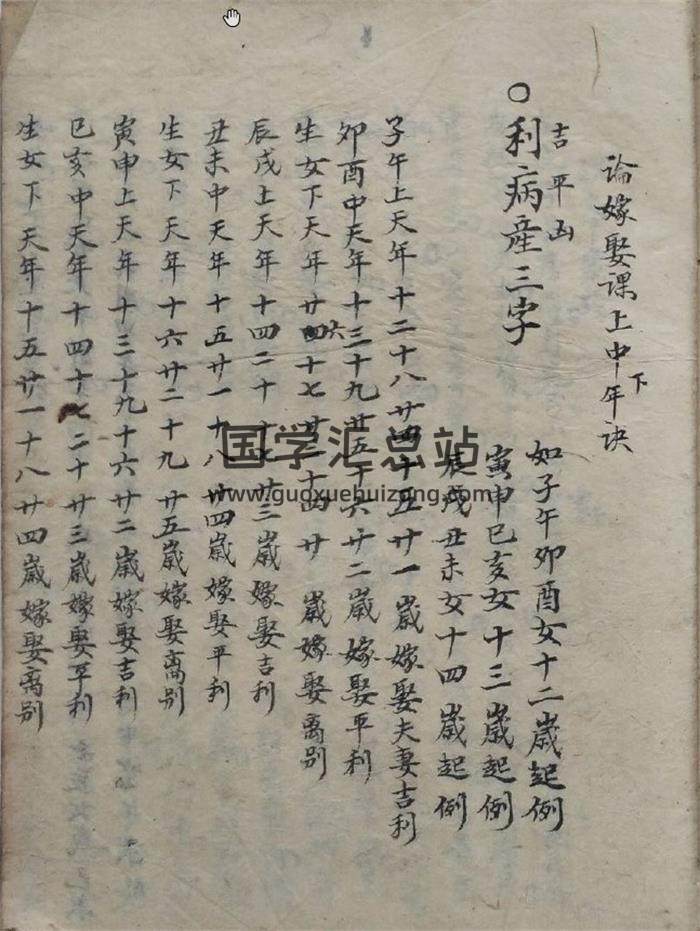 論嫁娶課上中下年诀
吉平凶
○利病産三字
如子午卯酉女十二歲起例
寅申巳亥女十三歲起例
辰戌丑未女十四歲起例
子午上天年十二十八廿四十五廿一歲嫁娶夫妻吉利
卯酉中天年十三十九廿五十六廿二歲嫁娶平利
生女下天年廿六十七廿三十四廿歲嫁娶离别
辰戌上天年十四二十十七廿三歲嫁娶吉利
丑未中天年十五廿一十八廿四歲嫁娶平利
生女下天年十六廿二十九廿五歲嫁娶离别
寅申上天年十三十九十六廿二歲嫁娶吉利
巳亥中天年十四十七二十廿三歲嫁娶平利
生女下天年十五廿一十八廿四歲嫁娶离别
国学汇总站
www.guoxuehuizong.com